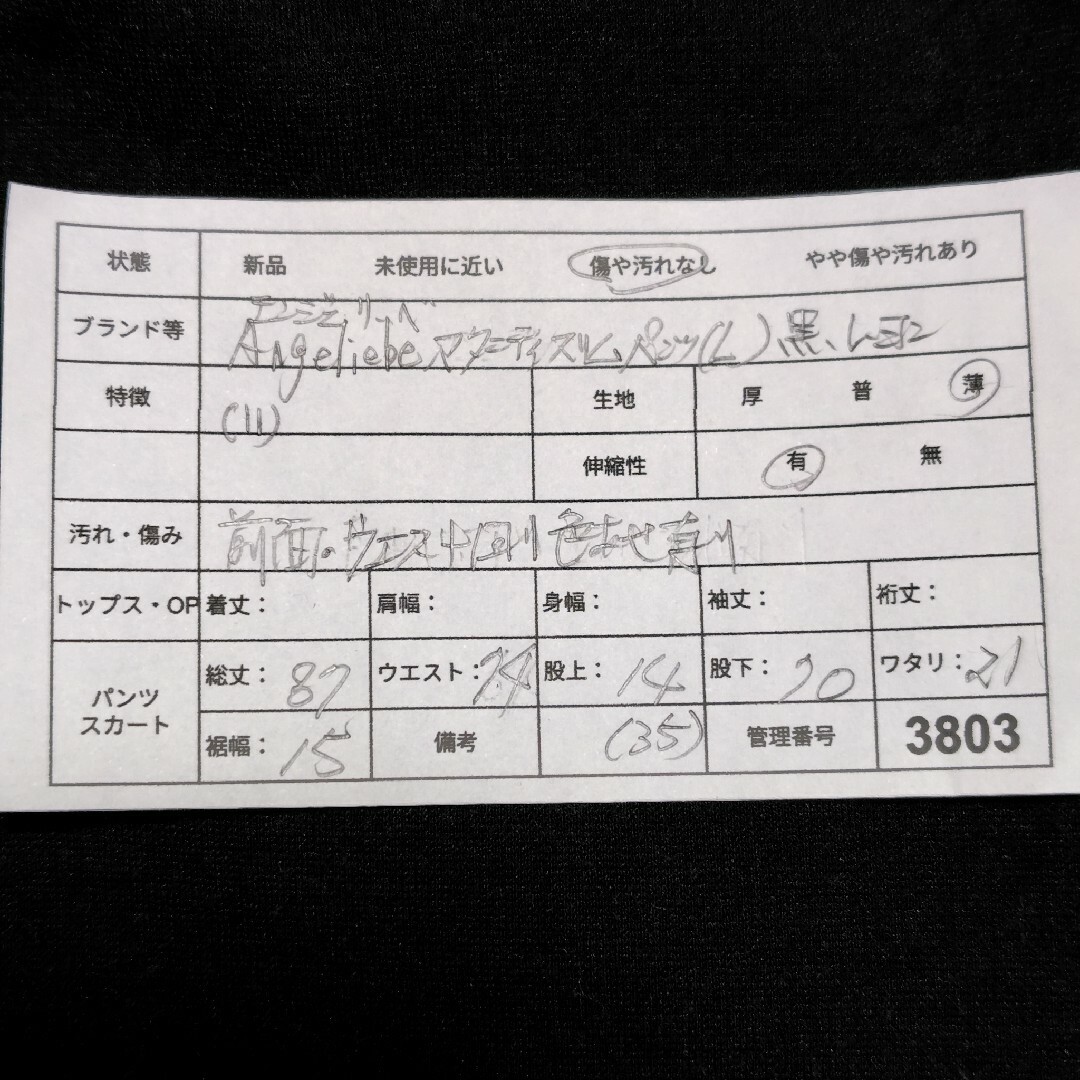 状態 新品 未使用に近い 傷や汚れなし やや傷や汚れあり
エンジェリーベ
ブランド等 Angeliebe マタニティスリムパンツ(L) 黒、
特徴 (11) 生地 厚 普 薄
伸縮性 有 無
汚れ・傷み 前面・ウエスト回り 色あせ有り
トップス・OP 着丈： 肩幅： 身幅： 袖丈： 裄丈：
パンツ スカート 総丈：87 ウエスト： 股上：14 股下：70 ワタリ：21
裾幅：15 備考 (35) 管理番号 3803